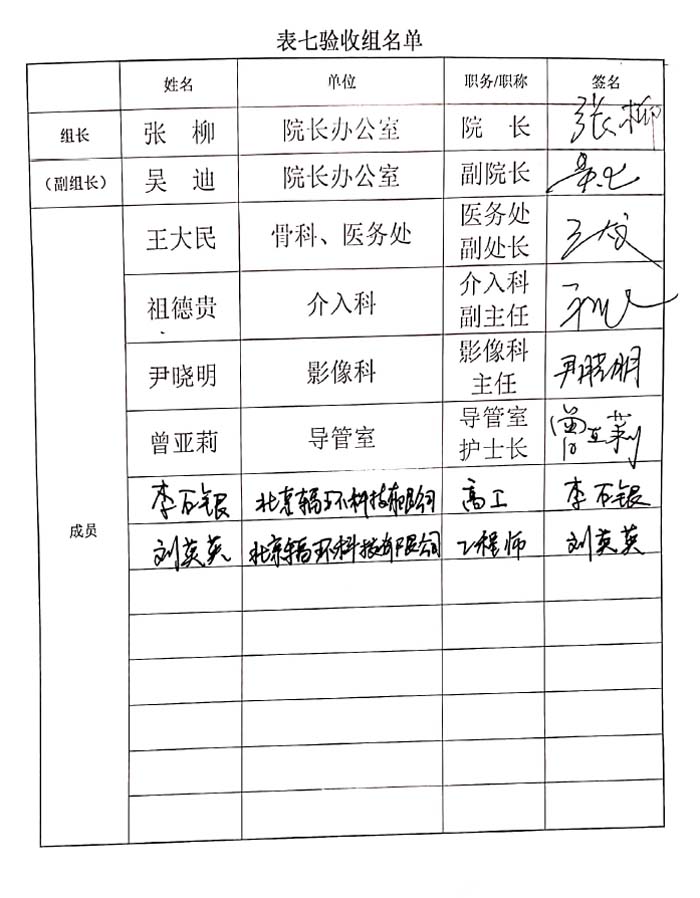 表七验收组名单
姓名 单位 职务/职称 签名
组长 张 柳 院长办公室 院 长 张柳
（副组长） 吴 迪 院长办公室 副院长
成员
王大民 骨科、医务处 医务处
副处长
祖德贵 介入科 介入科
副主任
尹晓明 影像科 影像科
主任 尹晓明
曾亚莉 导管室 导管室
护士长 曾亚莉
李石银 北京辐环科技有限公司 高工 李石银
刘英英 北京辐环科技有限公司 工程师 刘英英